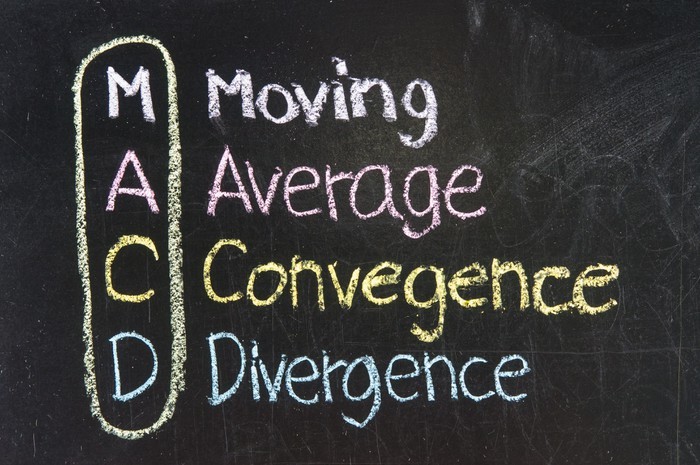 M Moving
A Average
C Convegence
D Divergence